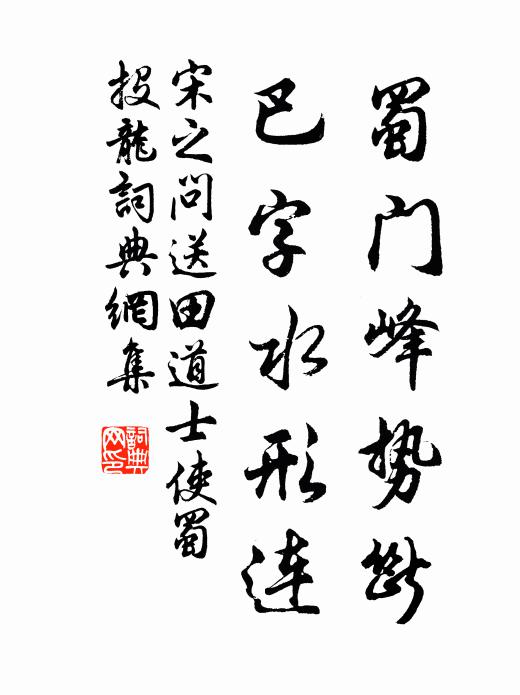 蜀门峰势断
巴字水形连
宋之问送田道士使蜀
投龍詞典網集
詞典网印